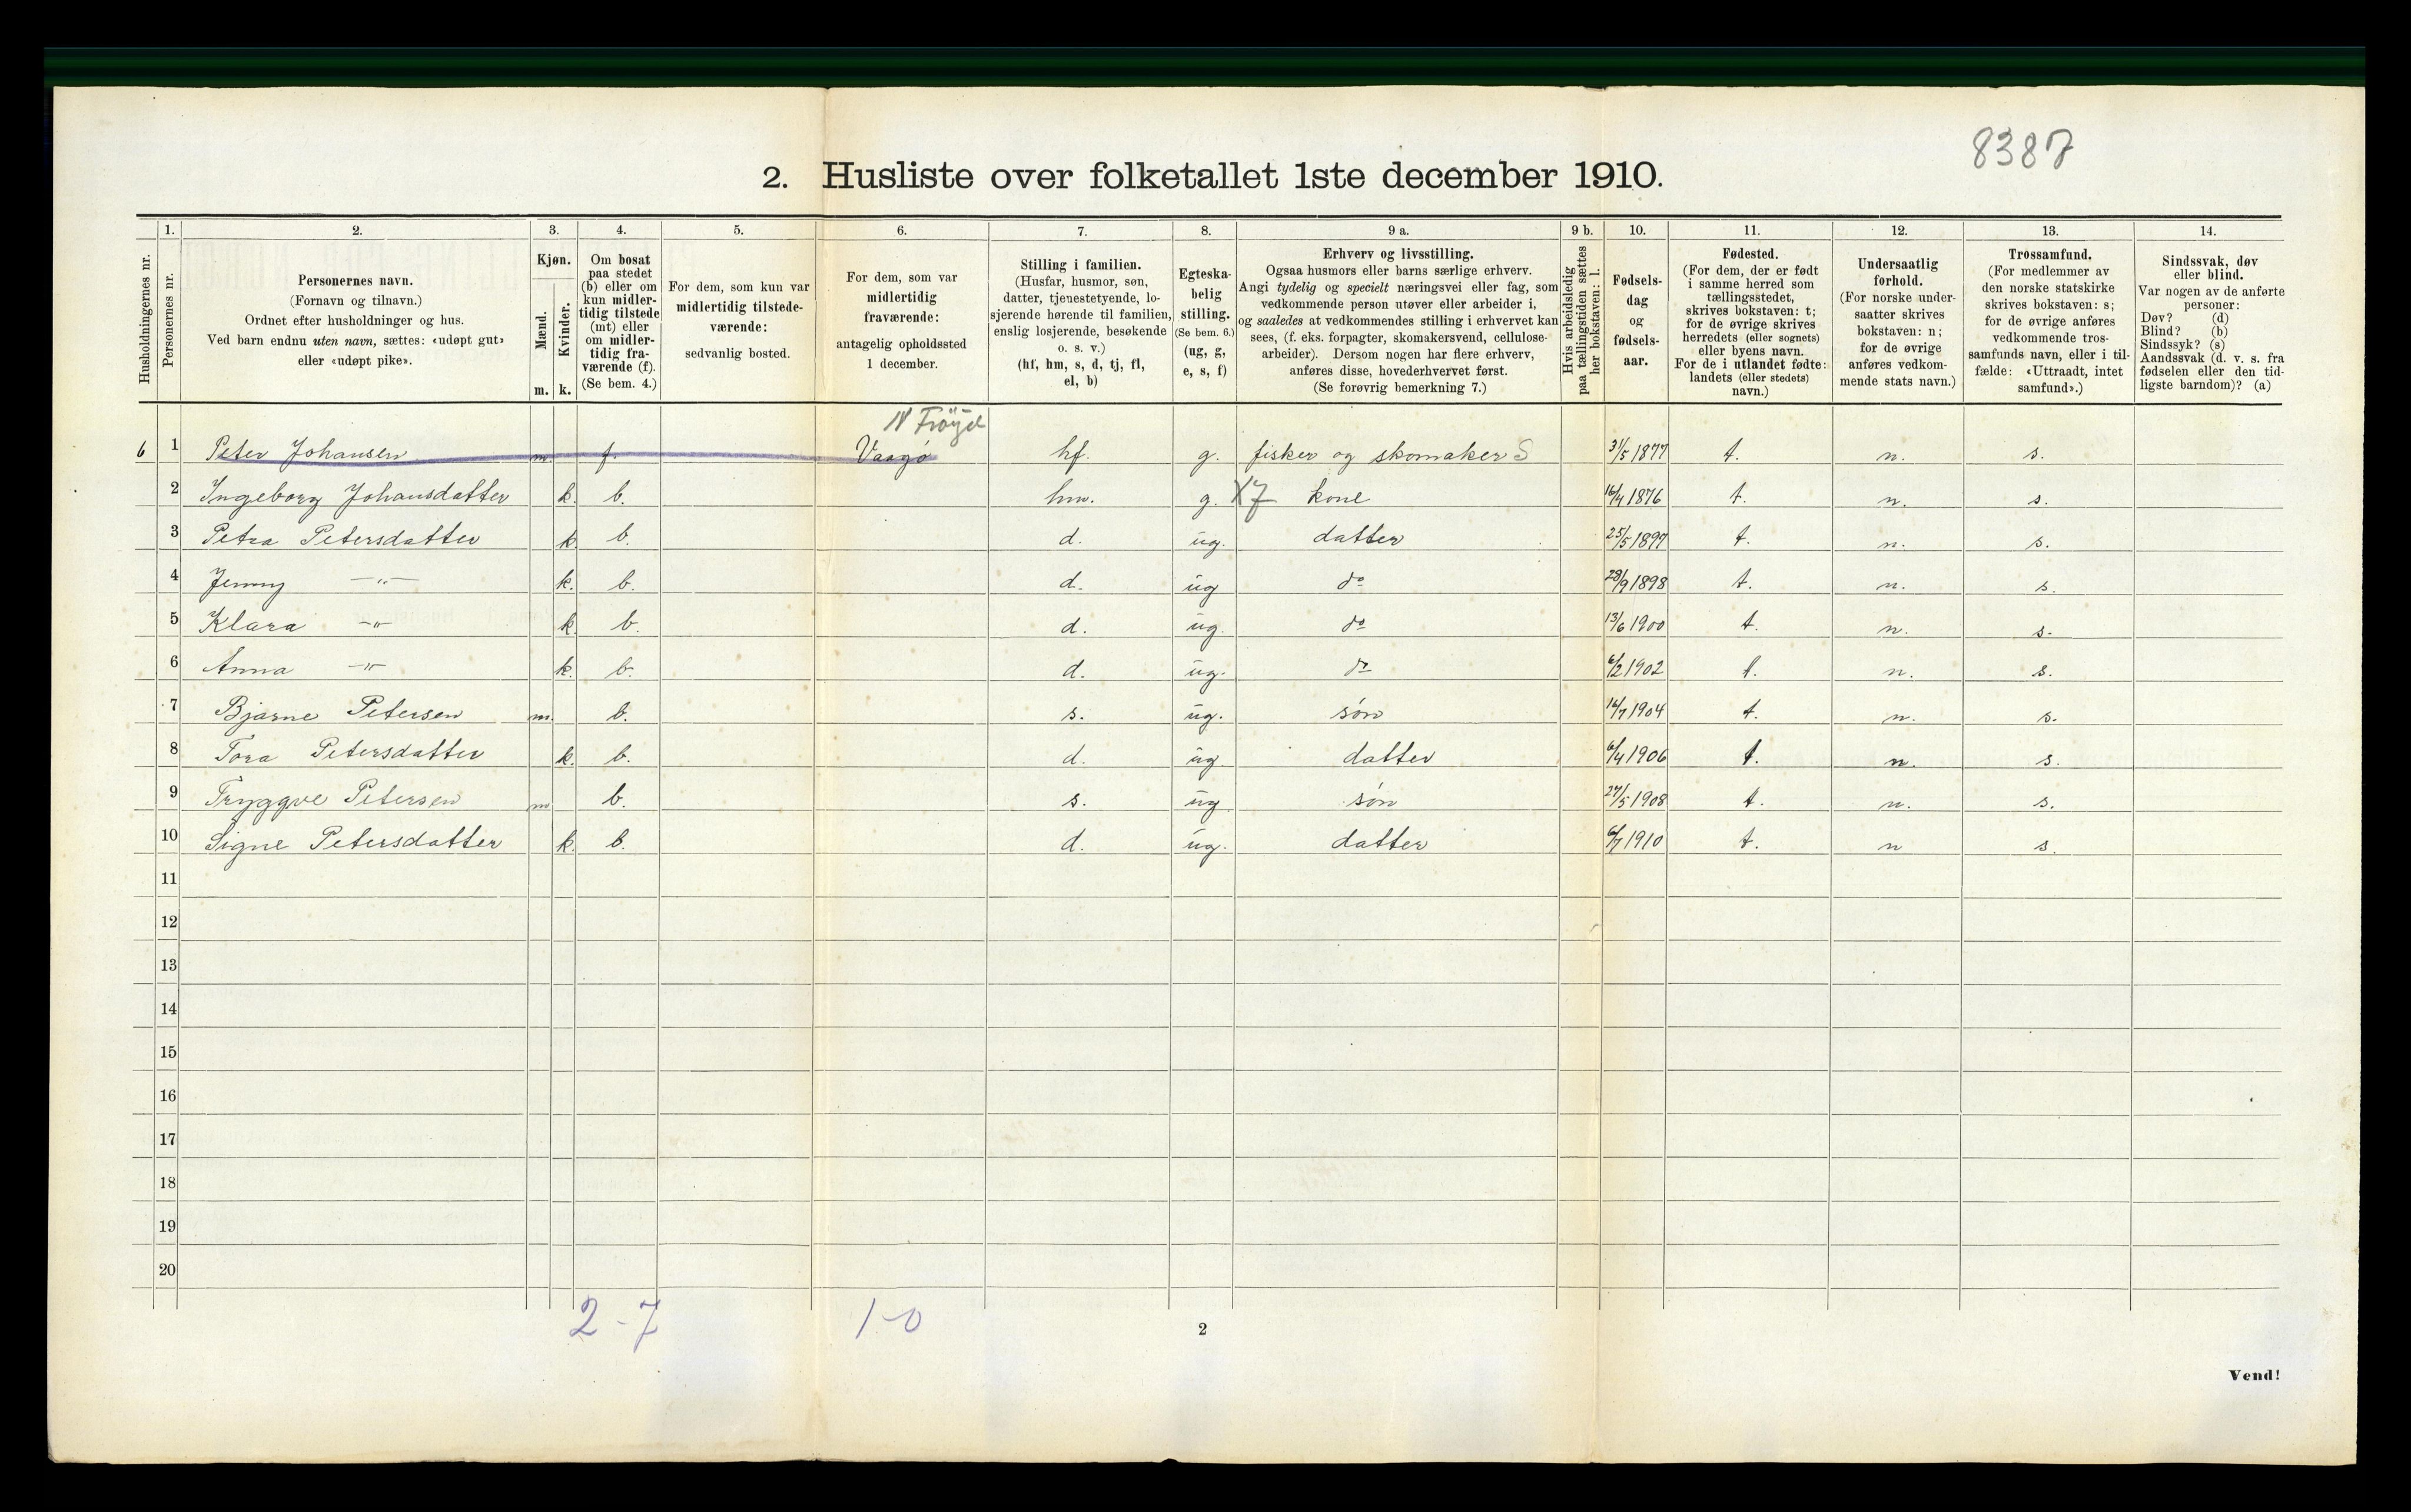 8387
2. Husliste over folketallet 1ste december 1910.
1. 2. 3. 4. 5. 6. 7. 8. 9 a. 9 b. 10. 11. 12. 13. 14.
Husholdningernes nr.
Personernes nr.
Personernes navn.
(Fornavn og tilnavn.)
Ordnet efter husholdninger og hus.
Ved barn endnu uten navn, sættes: «udøpt gut»
eller «udøpt pike».
Kjøn.
Mænd.
Kvinder.
m. k.
Om bosat
paa stedet
(b) eller om
kun midler-
tidig tilstede
(mt) eller
om midler-
tidig fra-
værende (f).
(Se bem. 4.)
For dem, som kun var
midlertidig tilstede-
værende:
sedvanlig bosted.
For dem, som var
midlertidig
fraværende:
antagelig opholdssted
1 december.
Stilling i familien.
(Husfar, husmor, søn,
datter, tjenestetyende, lo-
sjerende hørende til familien,
enslig losjerende, besøkende
o. s. v.)
(hf, hm, s, d, tj, fl,
el, b)
Egteska-
belig
stilling.
(Se bem. 6.)
(ug, g,
e, s, f)
Erhverv og livsstilling.
Ogsaa husmors eller barns særlige erhverv.
Angi tydelig og specielt næringsvei eller fag, som
vedkommende person utøver eller arbeider i,
og saaledes at vedkommendes stilling i erhvervet kan
sees, (f. eks. forpagter, skomakersvend, cellulose-
arbeider). Dersom nogen har flere erhverv,
anføres disse, hovederhvervet først.
(Se forøvrig bemerkning 7.)
Hvis arbeidsledig
paa tællingstiden sættes
her bokstaven: l.
Fødsels-
dag
og
fødsels-
aar.
Fødested.
(For dem, der er født
i samme herred som
tællingsstedet,
skrives bokstaven: t;
for de øvrige skrives
herredets (eller sognets)
eller byens navn.
For de i utlandet fødte:
landets (eller stedets)
navn.)
Undersaatlig
forhold.
(For norske under-
saatter skrives
bokstaven: n;
for de øvrige
anføres vedkom-
mende stats navn.)
Trossamfund.
(For medlemmer av
den norske statskirke
skrives bokstaven: s;
for de øvrige anføres
vedkommende tros-
samfunds navn, eller i til-
fælde: «Uttraadt, intet
samfund».)
Sindssvak, døv
eller blind.
Var nogen av de anførte
personer:
Døv? (d)
Blind? (b)
Sindssyk? (s)
Aandssvak (d. v. s. fra
fødselen eller den tid-
ligste barndom)? (a)
N Frøya
6 1 Peter Johansen m. f. Vaagø hf. g. fisker og skomaker S 31/5 1877 t. n. s.
2 Ingeborg Johansdatter k. b. hm. g. X7 kone 16/4 1876 t. n. s.
3 Petra Petersdatter k. b. d. ug. datter 25/5 1897 t. n. s.
4 Jenny —"— k. b. d. ug do 28/9 1898 t. n. s.
5 Klara —"— k. b. d. ug. do 13/6 1900 t. n. s.
6 Anna —"— k. b. d. ug. do 6/2 1902 t. n. s.
7 Bjarne Petersen m. b. s. ug. søn 16/7 1904 t. n. s.
8 Tora Petersdatter k. b. d. ug datter 6/4 1906 t. n. s.
9 Tryggve Petersen m. b. s. ug søn 27/5 1908 t. n. s.
10 Signe Petersdatter k. b. d. ug. datter 6/7 1910 t. n s.
11
12
13
14
15
16
17
18
19
20
2-7 1-0
2
Vend!